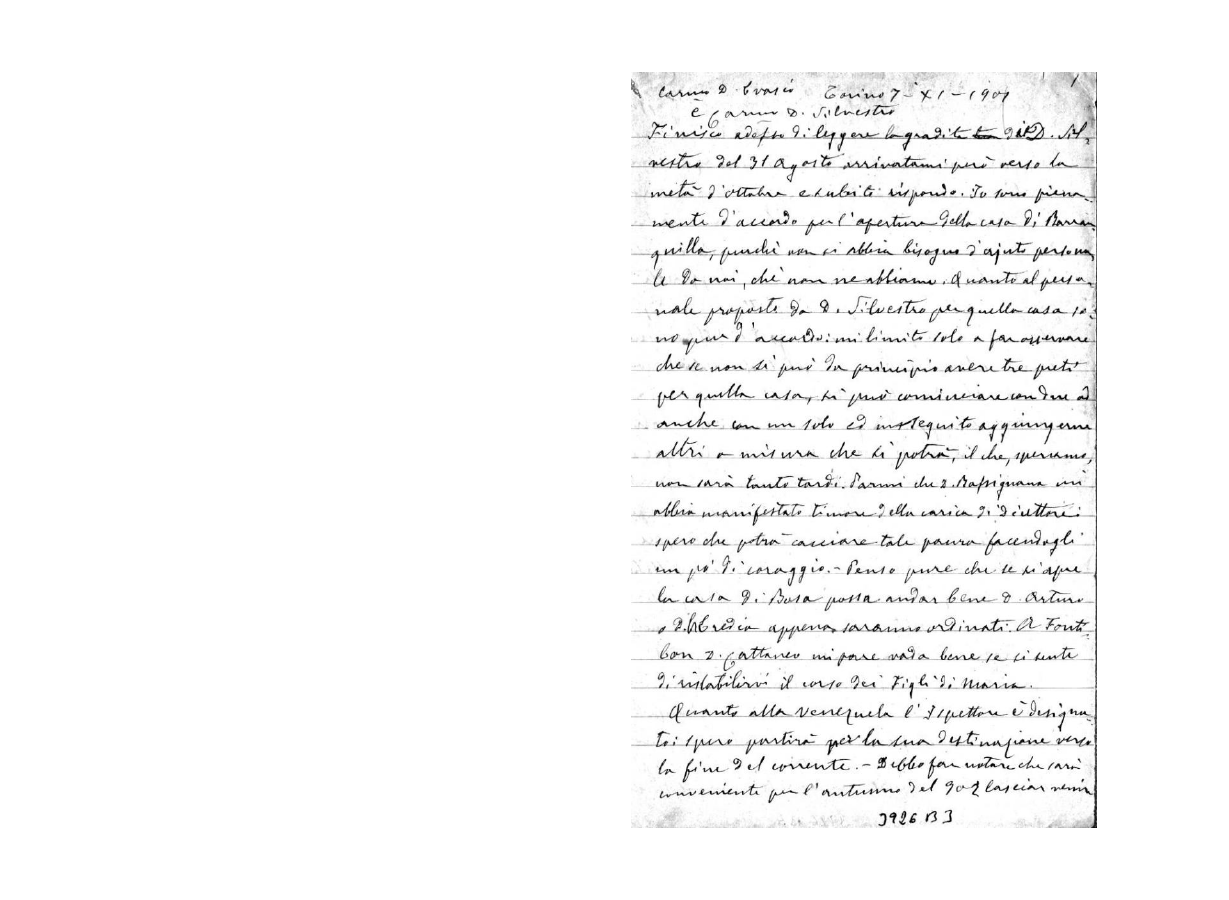 Carmo D. Evasio Torino 7-XI-1901
e Carmo D. Silvestro
Finisco adesso di leggere la gradita di D. Sil-
vestro del 31 Agosto arrivatami però verso la
metà d'ottobre e subito rispondo. Io sono piena-
mente d'accordo per l'apertura della casa di Barran-
quilla, purchè non si abbia bisogno d'ajuto persona-
le da noi, chè non ne abbiamo. Quanto al perso-
nale proposto da D. Silvestro per quella casa so-
no pur d'accordo: mi limito solo a far osservare
che se non si può da principio avere tre preti
per quella casa, si può cominciare con due od
anche con un solo ed in seguito aggiungerne
altri a misura che si potrà, il che, speriamo,
non sarà tanto tardi. Parmi che D. Rassignana mi
abbia manifestato timore della carica di direttore:
spero che potrà cacciare tale paura facendogli
un po' di coraggio. - Penso pure che se si apre
la casa di Bosa possa andar bene D. Arturo
o D. Heredia appena saranno ordinati. A Fonti-
bon D. Cattaneo mi pare vada bene se si sente
di ristabilirvi il corso dei Figli di Maria.
Quanto alla Venezuela l'Ispettore è designa-
to: spero partirà per la sua destinazione verso
la fine del corrente. - Debbo far notare che sarà
conveniente per l'autunno del 902 lasciar venir
3926 B3